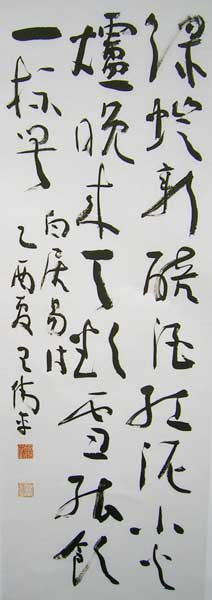 绿蚁新醅酒红泥小火
爐晚来天欲雪能飲
一杯無
白居易诗
乙酉夏王平